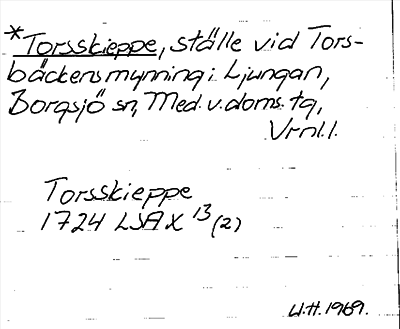 *Torsskieppe, ställe vid Tors-
bäckens mynning i Ljungan,
Borgsjö sn, Med. v. doms. tg,
Vrnl. l.
Torsskieppe
1724 LSA X 13 (2)
U.H. 1969.